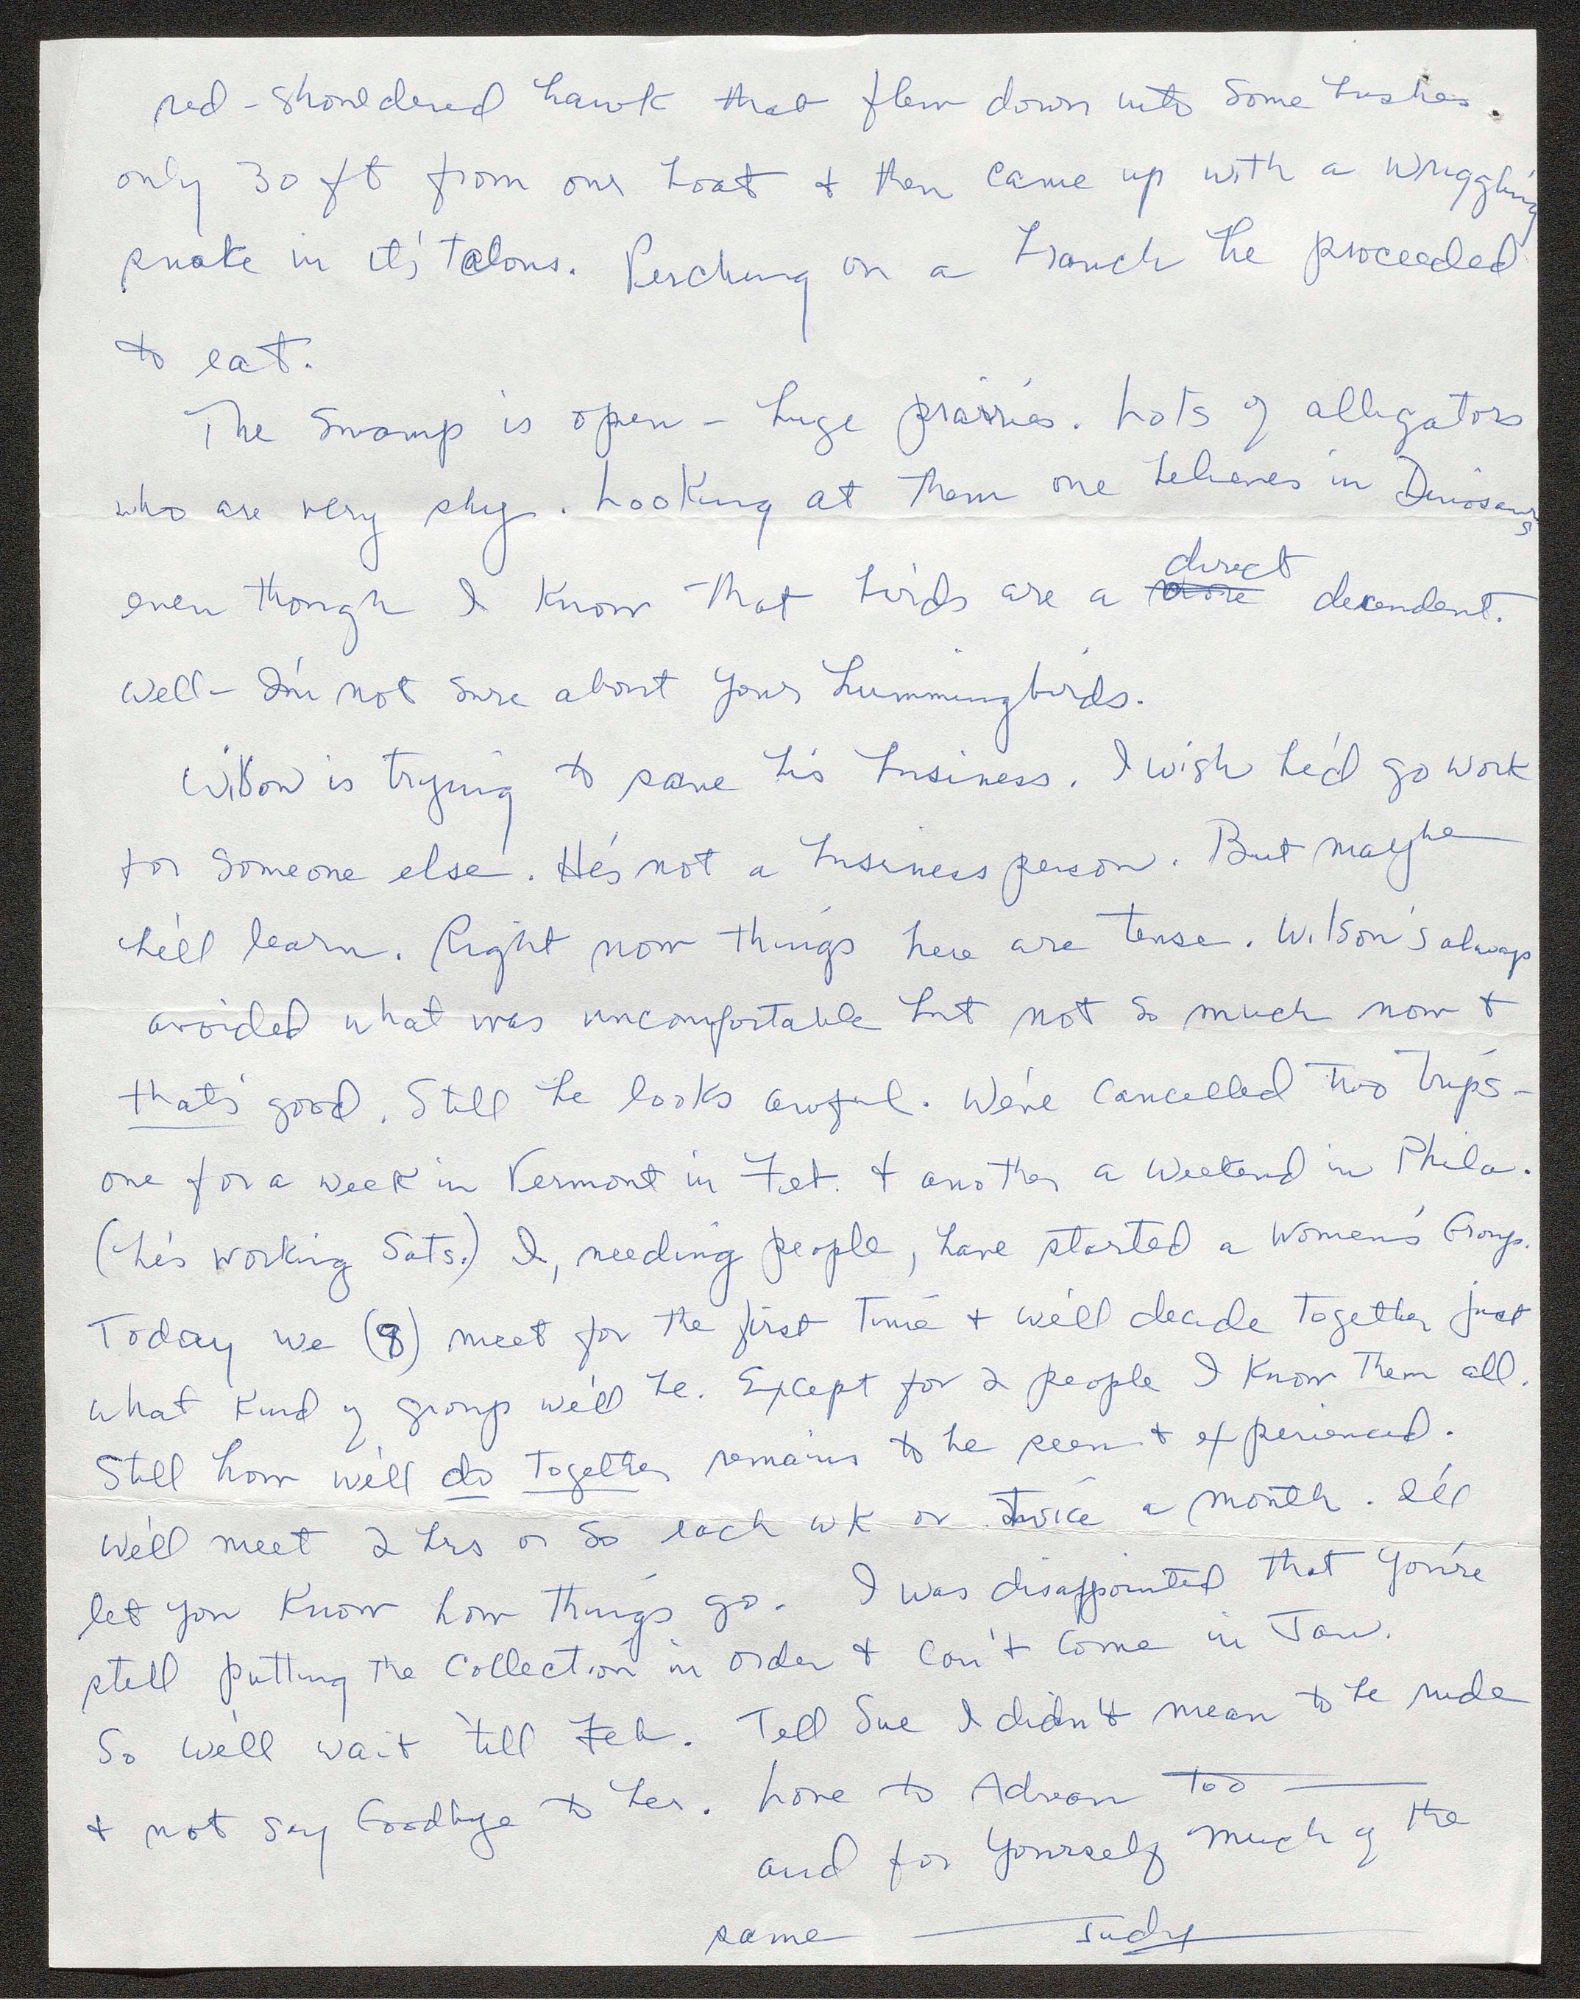 red-shouldered hawk that flew down into some bushes.
only 30 ft from our boat & then came up with a wriggling
snake in it's talons. Perching on a branch he proceeded
to eat.
The swamp is open - huge prairies. Lots of alligators
who are very shy. Looking at them one believes in Dinosaurs
even though I know that birds are a ~~more~~ direct decendent.
Well - I'm not sure about your hummingbirds.
Wilson is trying to save his business. I wish he'd go work
for someone else. He's not a business person. But maybe
he'll learn. Right now things here are tense. Wilson's always
avoided what was uncomfortable but not so much now &
that's good. Still he looks awful. We've cancelled two trips -
one for a week in Vermont in Feb. & another a weekend in Phila.
(he's working Sats.) I, needing people, have started a Women's Group.
Today we (8) meet for the first time & we'll decide together just
what kind of group we'll be. Except for 2 people I know them all.
Still how we'll do together remains to be seen & experienced.
We'll meet 2 hrs or so each wk or twice a month. I'll
let you know how things go. I was disappointed that you're
still putting the collection in order & can't come in Jan.
So we'll wait 'till Feb. Tell Sue I didn't mean to be rude
& not say Goodbye to her. Love to Adrean too
and for yourself much of the
same Judy